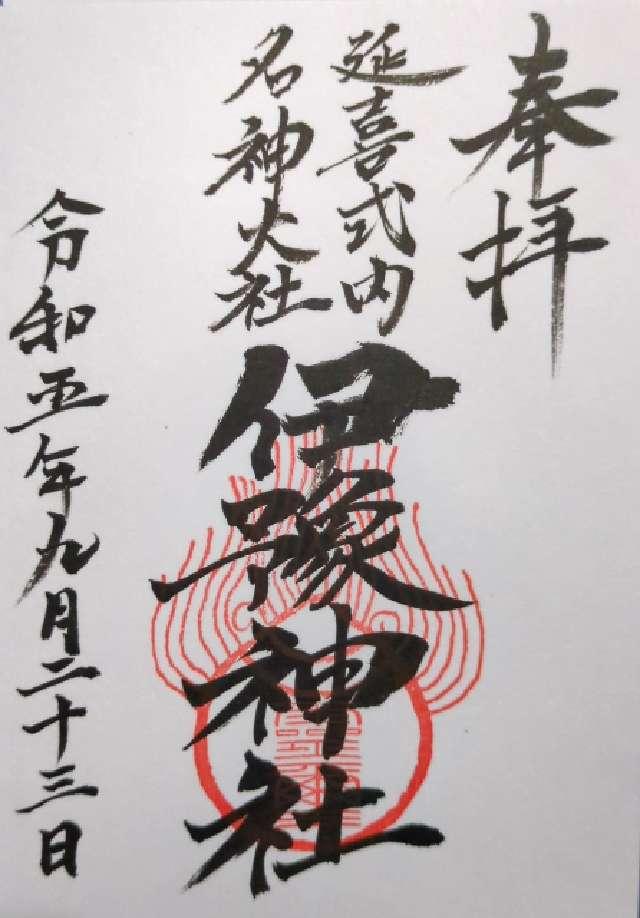 奉拝
延喜式内
名神大社
伊豫神社
令和五年九月二十三日